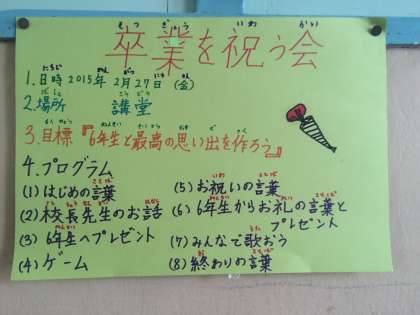 卒業を祝う会
1.日時 2015年 2月27日（金）
2.場所 講堂
3.目標『6年生と最高の思い出を作ろう』
4.プログラム
(1)はじめの言葉
(2)校長先生のお話
(3)6年生へプレゼント
(4)ゲーム
(5)お祝いの言葉
(6)6年生からお礼の言葉と
プレゼント
(7)みんなで歌おう
(8)終わりの言葉